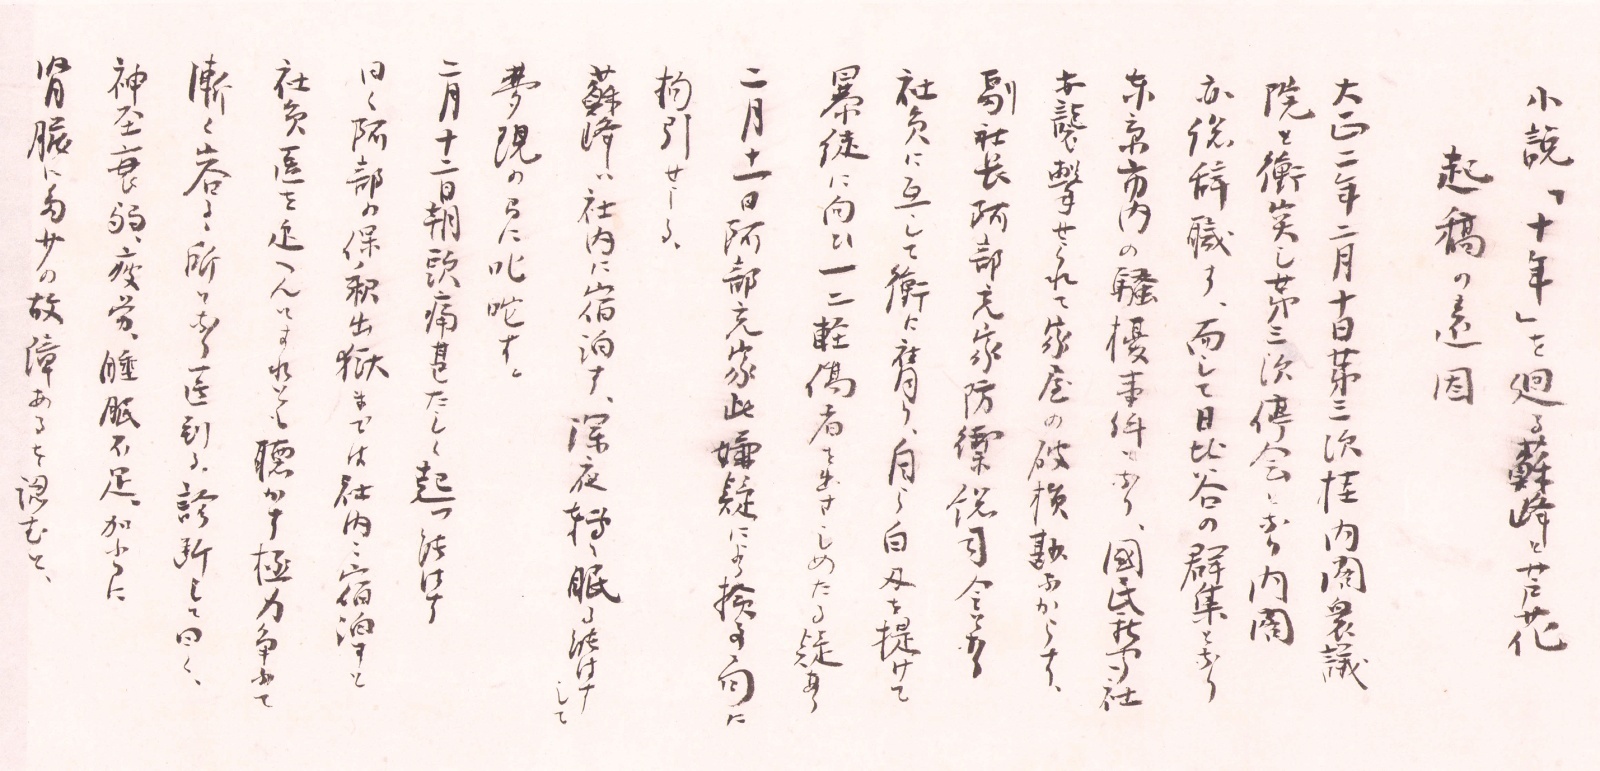 小説「十年」を廻る蘇峰と芦花
起稿の遠因
大正二年二月十日第三次桂内閣衆議
院と衝突し第三次停会となり内閣
亦総辞職す、而して日比谷の群集となり
東京市内の騒擾事件となり、國民新聞社
亦襲撃せられて家屋の破損尠なからす、
副社長阿部充家防禦総司令となり
社員に互して衝に当り、自ら白刃を提けて
暴徒に向ひ一二軽傷者を出さしめたる疑あり
二月十一日阿部充家此嫌疑により検事局に
拘引せらる、
蘇峰ハ社内に宿泊す、深夜転々眠る能はすして
夢現の間に叱咤す。
二月十二日朝頭痛甚たしく起つ能はす
曰く阿部の保釈出獄までは社内に宿泊すと
社員医を迎へんとすれとも聴かす極力争ふて
漸く容るゝ所となり医到る、診断して曰く、
神至衰弱、疲労、睡眠不足、加ふるに
腎臓に多少の故障あるを認むと、